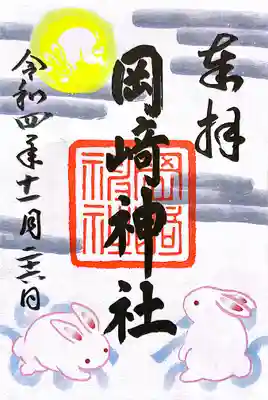 奉拝
岡崎神社
岡崎
神社
令和四年十一月二十六日